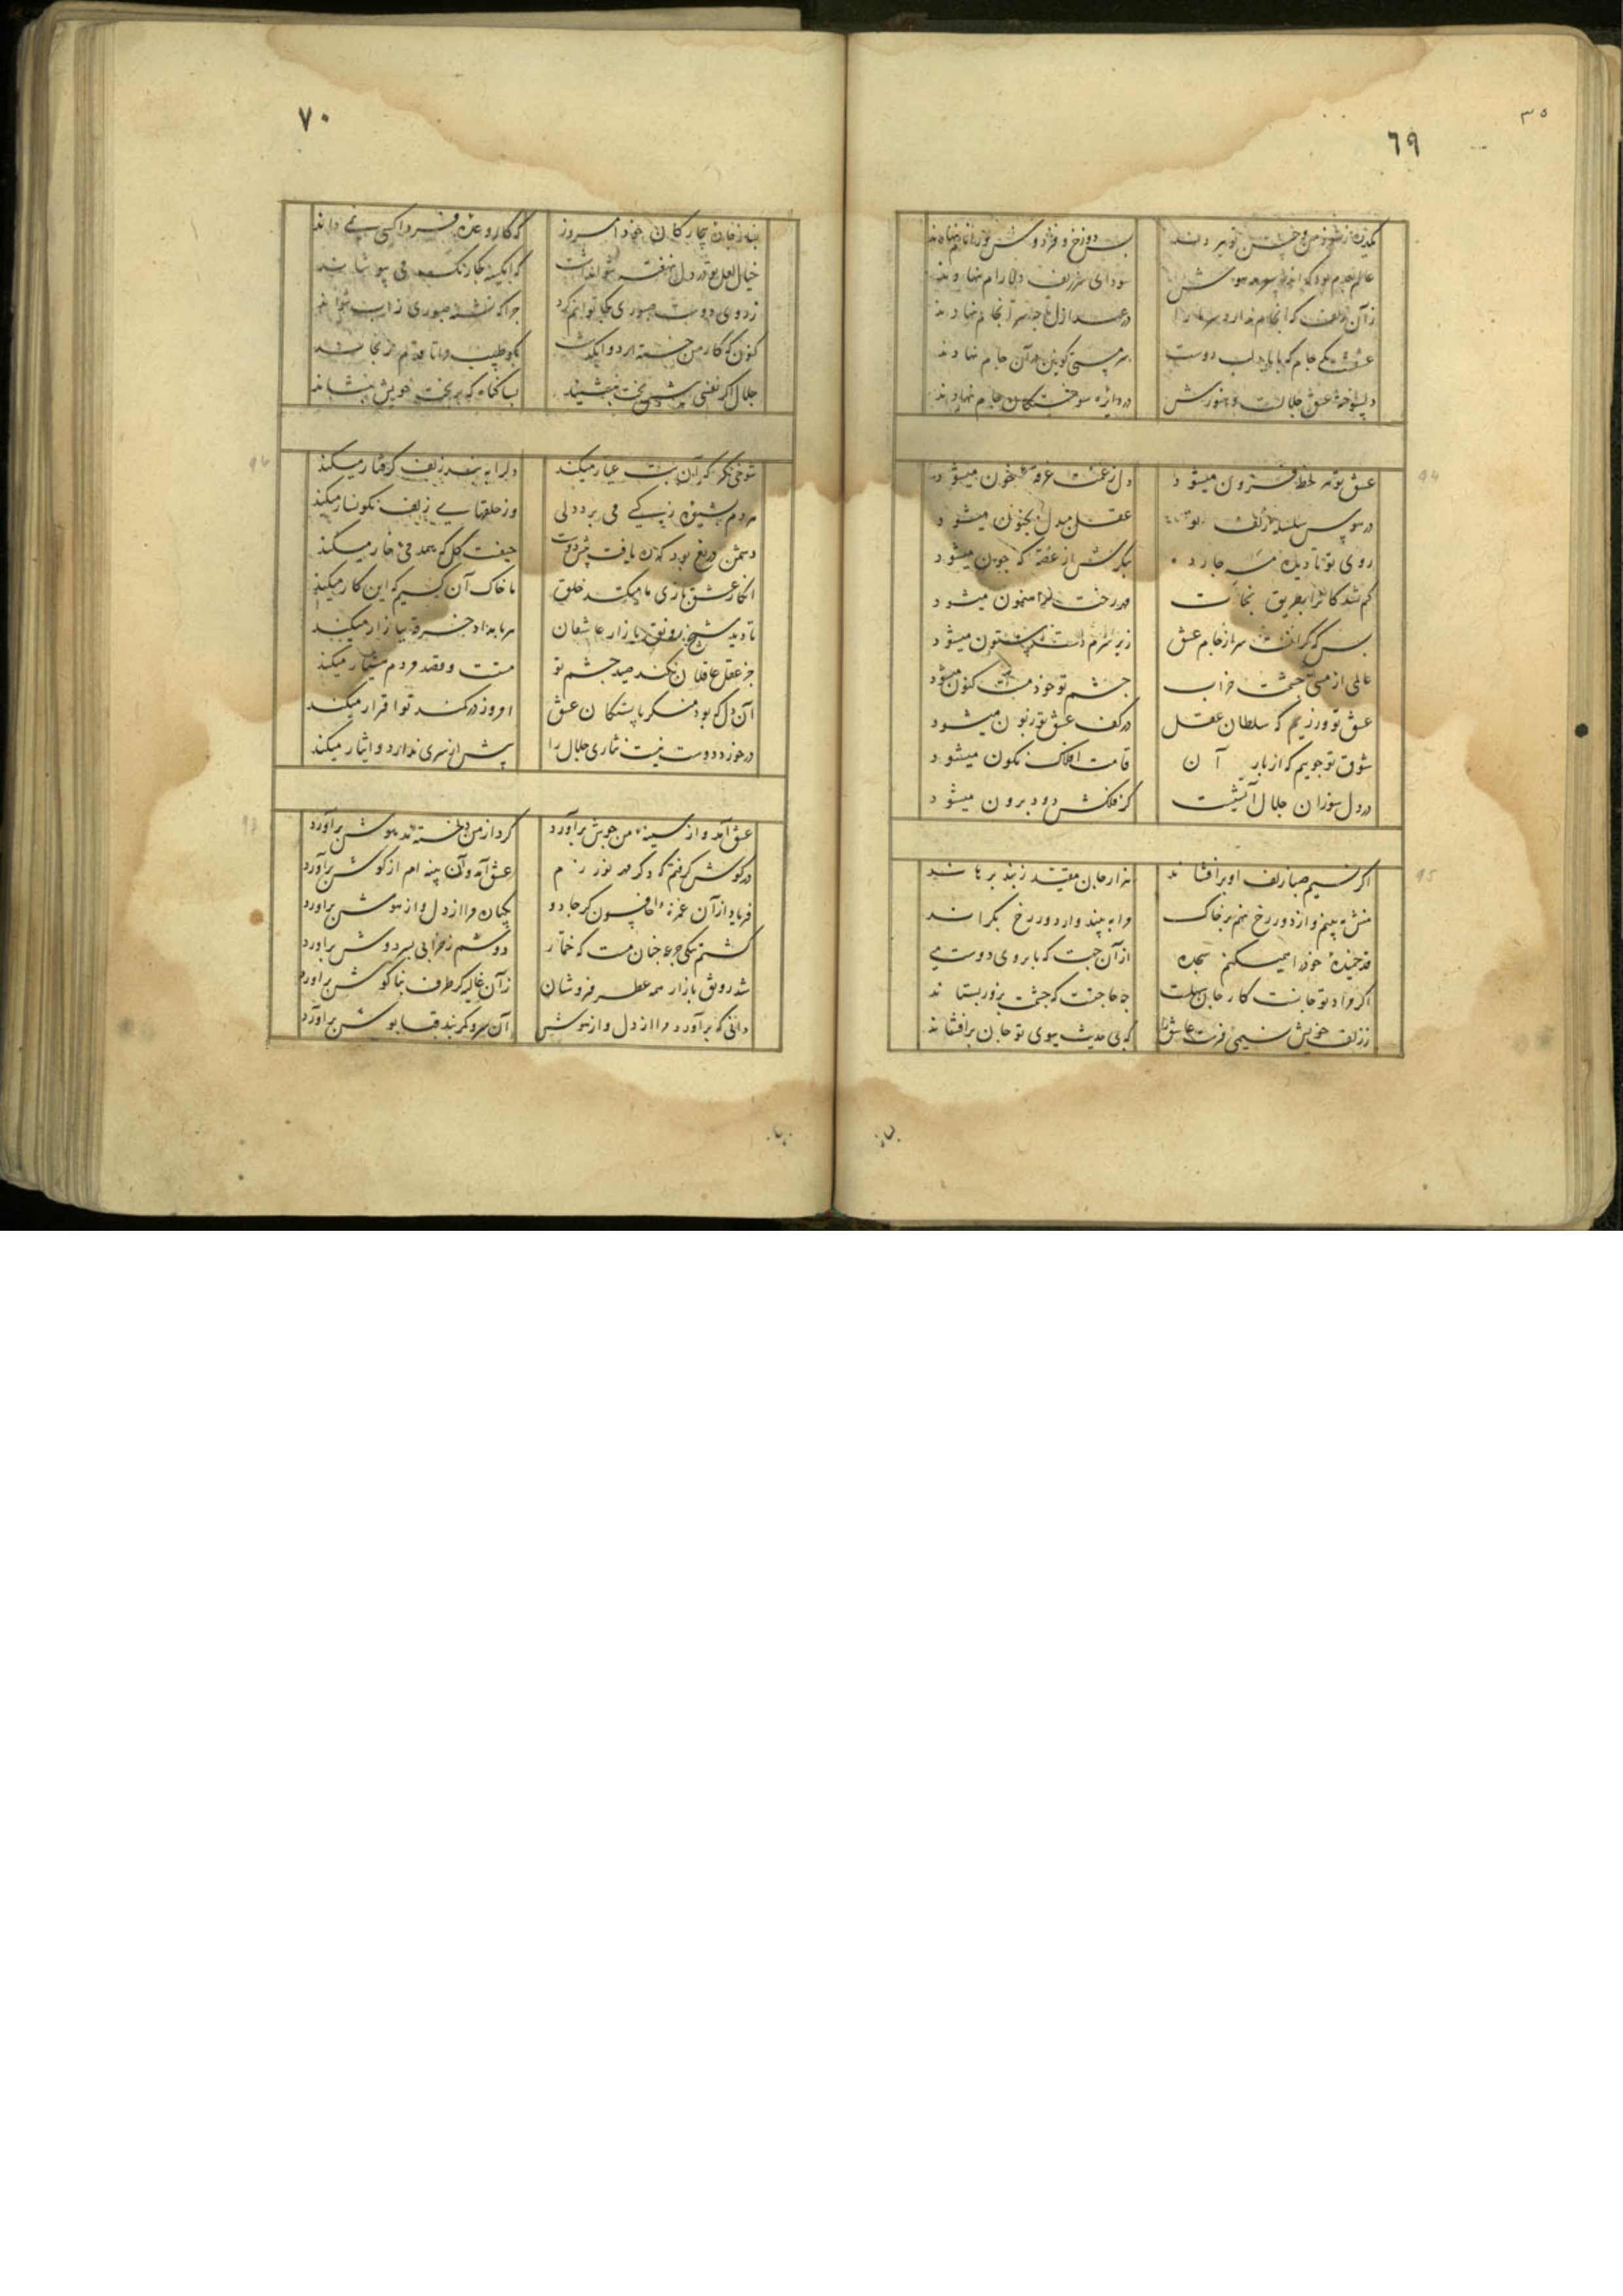 ۳۵
۶۹
عالم
سودای سر زلف دلارام نهادند
زآن زلف که انجام ندارد
سرمستی کونین در آن جام نهادند
در دایره سوختکان جام نهادند
94
عشق تو هر لحظه فزون میشود
دل ز غمت غرقه بخون میشود
در هوس سلسله زلف تو
عقل مبدل بجنون میشود
روی تو تا دیده
بنکرش از غصه که چون میشود
کم شدکانرا بطریق نجات
مهر رخت راهنمون میشود
بس که کرانست سر از جام عشق
زیر سرم دست ستون میشود
عالمی از مستی چشمت خراب
چشم تو خود مست کنون میشود
عشق تو ورزیم که سلطان عقل
در کف عشق تو زبون میشود
شوق تو جوییم که از بار آن
قامت افلاک نکون میشود
در دل سوزان جلال آتشیست
کز فلکش دود برون میشود
95
اکر نسیم صبا زلف او برافشاند
هزار جان مقید ز بند برهاند
منش به بینم و از دور رخ نهم بر خاک
مرا به بیند و از دور رخ بکرداند
قد خمیده خود را همیکنم سجده
از آن جهت که بابروی دوست می
اکر مراد تو جانست کار جان سهلست
چه حاجتست که چشمت بزور بستاند
ز زلف خویش نسیمی فرست عاشق را
که بی حدیث ببوی تو جان برافشاند
۷۰
بیچارکان امروز
که کار وعده فردا کسی نمی داند
خیال لعل تو در دل نهفته نتوان داشت
ز روی دوست صبوری کجا توانم کرد
چرا که تشنه صبوری ز آب نتواند
کنون که کار من خسته از دوا بکذشت
بکو طبیب مرا تا قدم نرنجاند
جلال اکر نفسی پیش تخت بنشیند
بسا کناه که بر تخت خویش بنشاند
96
شوخی نکر که آن بت عیار میکند
دلرا به بند زلف کرفتار میکند
مردم بشیوه زیرکی می برد دلی
وز حلقهای زلف نکونسار میکند
دشمن دریغ بود که ره یافت پیش دوست
حیفست کل که همدمی خار میکند
انکار عشق بازی ما میکنند خلق
ما خاک آن کسیم که این کار میکند
تا دید شیخ رونق بازار عاشقان
هر بامداد خرقه ببازار میکند
جز عقل عاقلان نکند صید چشم تو
مستست و قصد مردم هشیار میکند
آن دل که بود منکر پابستکان عشق
امروز در کمند تو اقرار میکند
در خورد دوست نیست نثاری جلال را
پیش از سری ندارد و ایثار میکند
97
عشق آمد و از سینه من جوش برآورد
کرد از من دلخسته مدهوش برآورد
در کوش کرفتم که دکر مهر نورزم
عشق آمد و آن پنبه ام از کوش برآورد
فریاد از آن غمزه افسونکر جادو
یکباره مرا از دل و از هوش برآورد
کشتم یکی جرعه چنان مست که خمار
دوشم ز خرابی بسر دوش برآورد
شد رونق بازار همه عطر فروشان
زآن غالیه کز طرف بناکوش برآورد
دانی که برآورد مرا از دل و از هوش
آن سرو کز بند قبا نوش برآورد